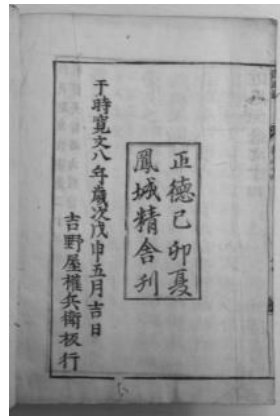 正德己卯夏
鳳城精舍刊
于時寬文八年歲次戊申五月吉日
吉野屋權兵衛板行